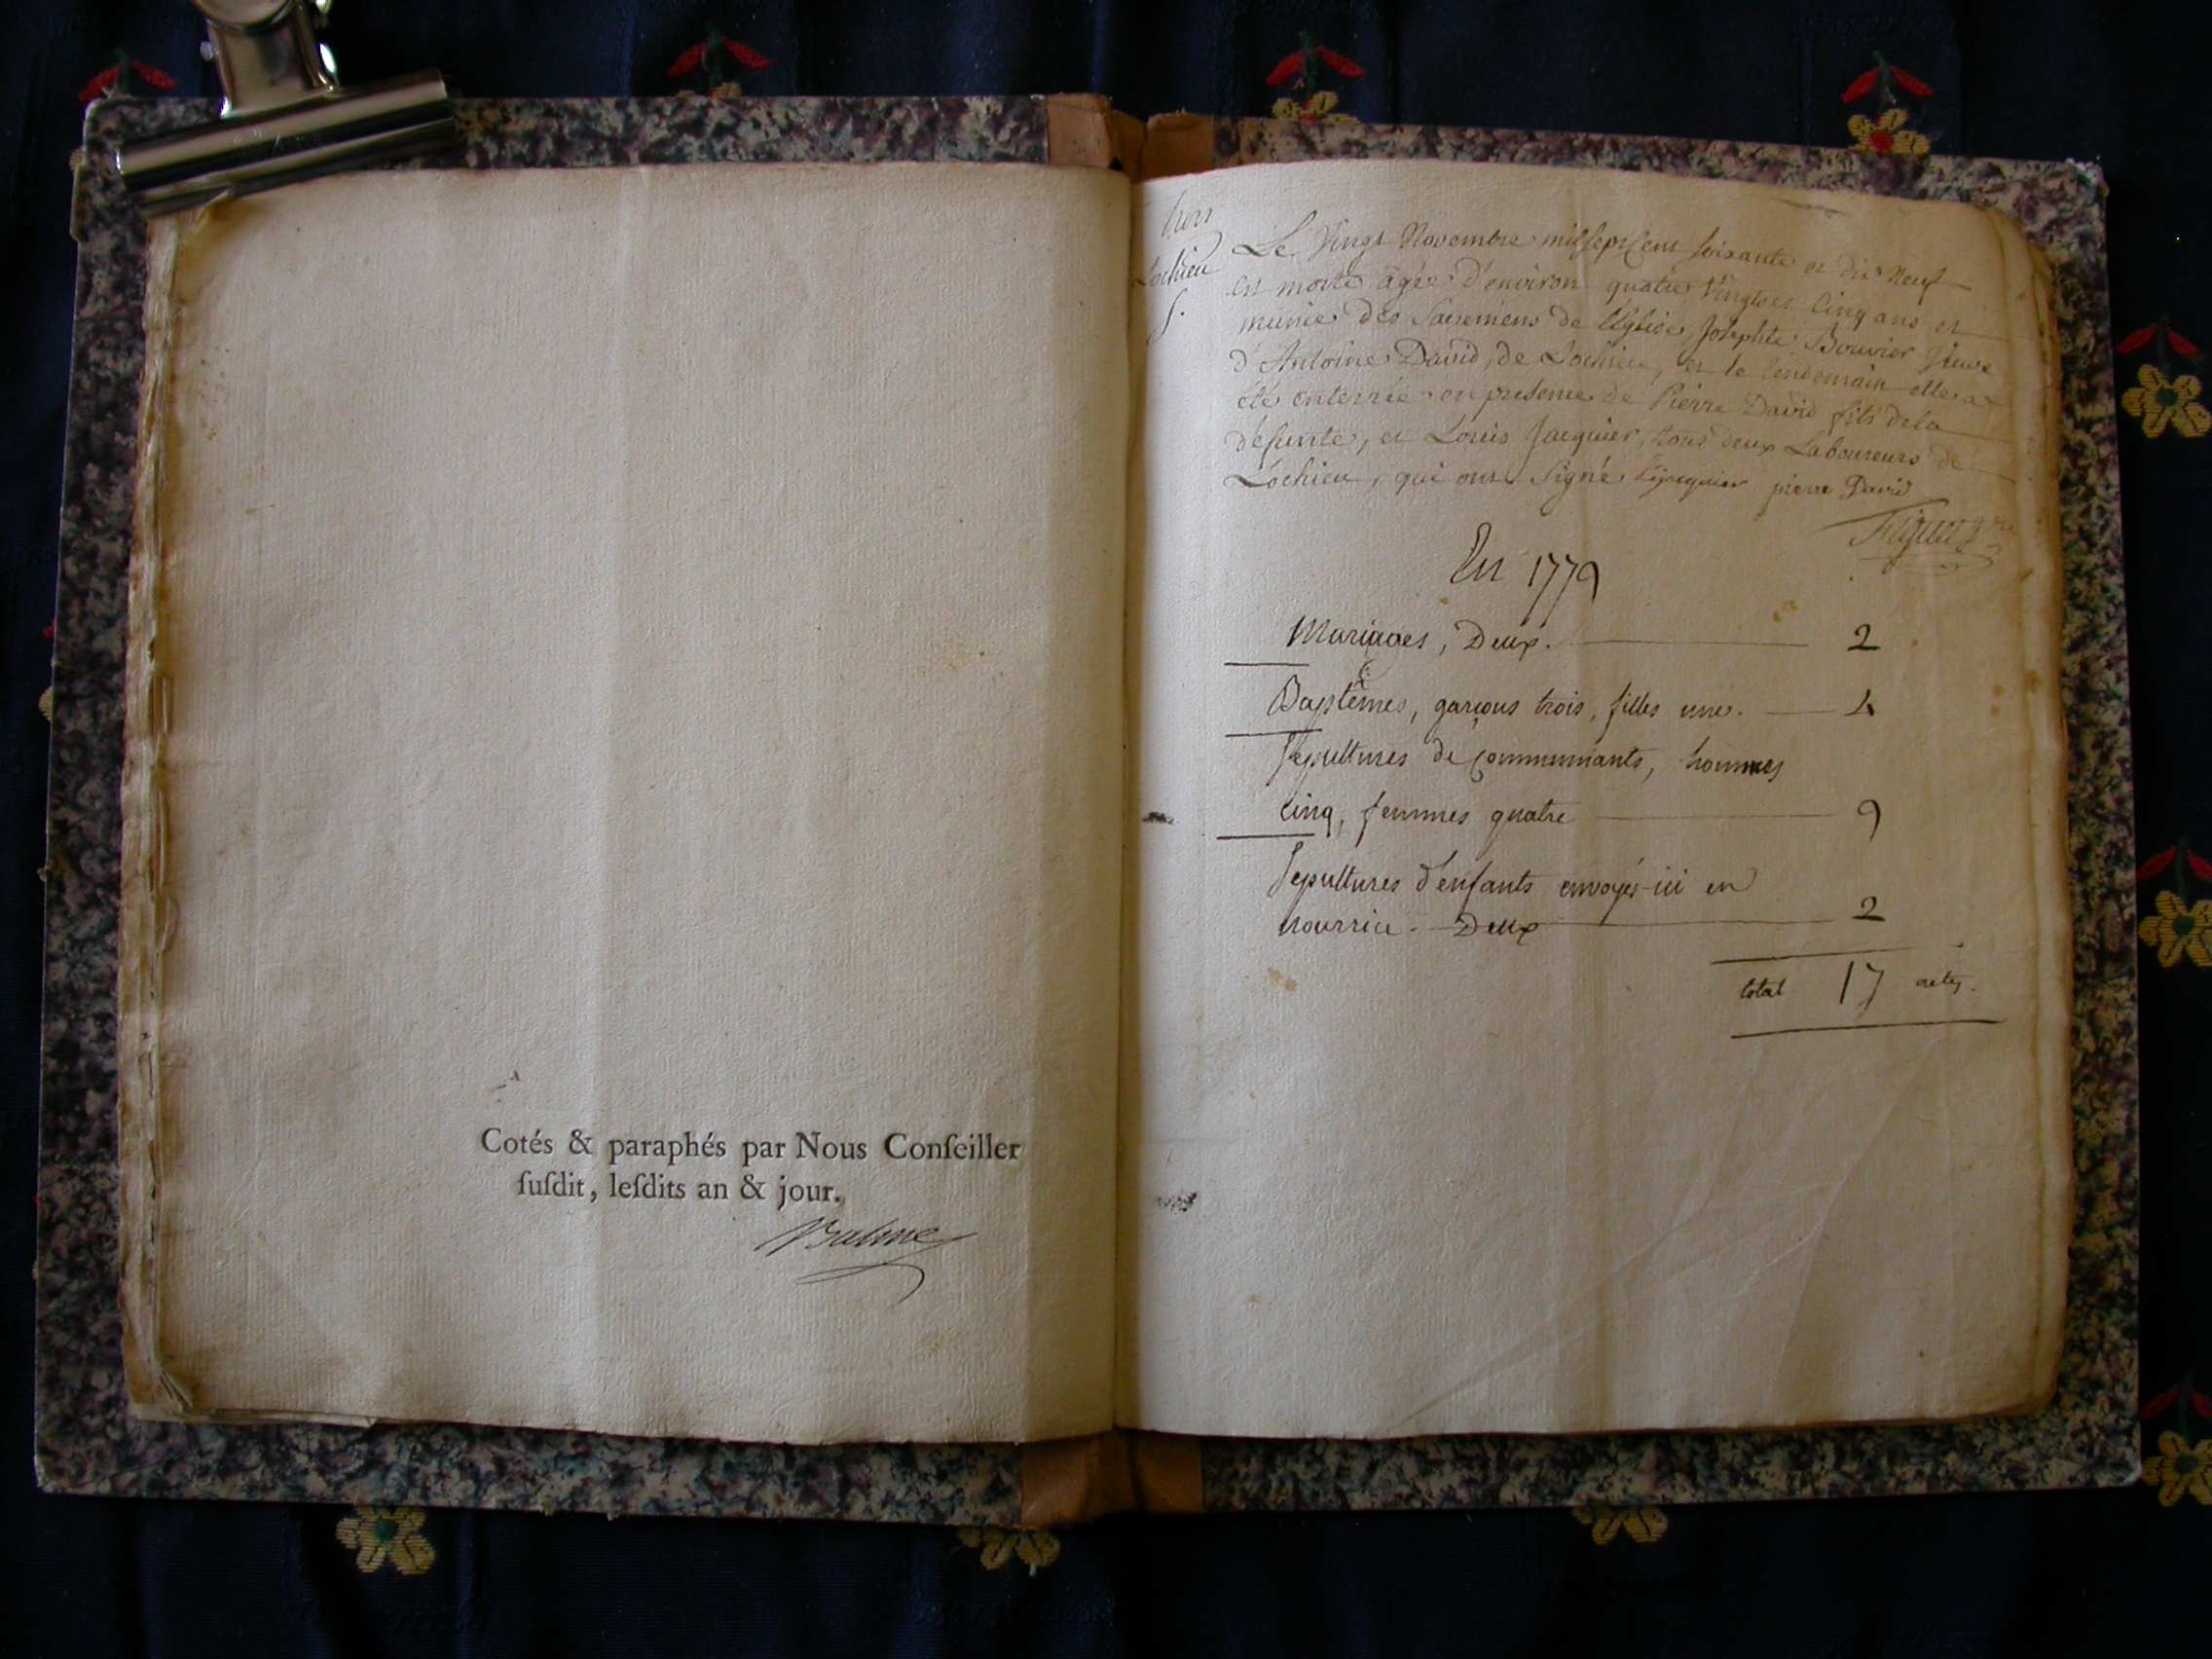 Cotés & paraphés par Nous Conſeiller
ſuſdit, leſdits an & jour.
Balme
hors
Lochieu
S.
Le Vingt Novembre mil sept Cent soixante et dix Neuf
est morte âgée d'environ quatre Vingts et Cinq ans et
munie des Sacremens de l'Eglise Josephte Bouvier Veuve
d'Antoine David, de Lochieu, et le lendemain elle a
été enterrée en presence de Pierre David fils de la
défunte, et Louis Jacquier, tous deux Laboureurs de
Lochieu, qui ont Signé L jacquier pierre David
En 1779
Mariages, Deux. 2
Baptêmes, garçons trois, filles une. 4
Sepultures de Communiants, hommes
cinq, femmes quatre 9
Sepultures d'enfants envoyés-ici en
nourrice. Deux 2
total 17 actes.